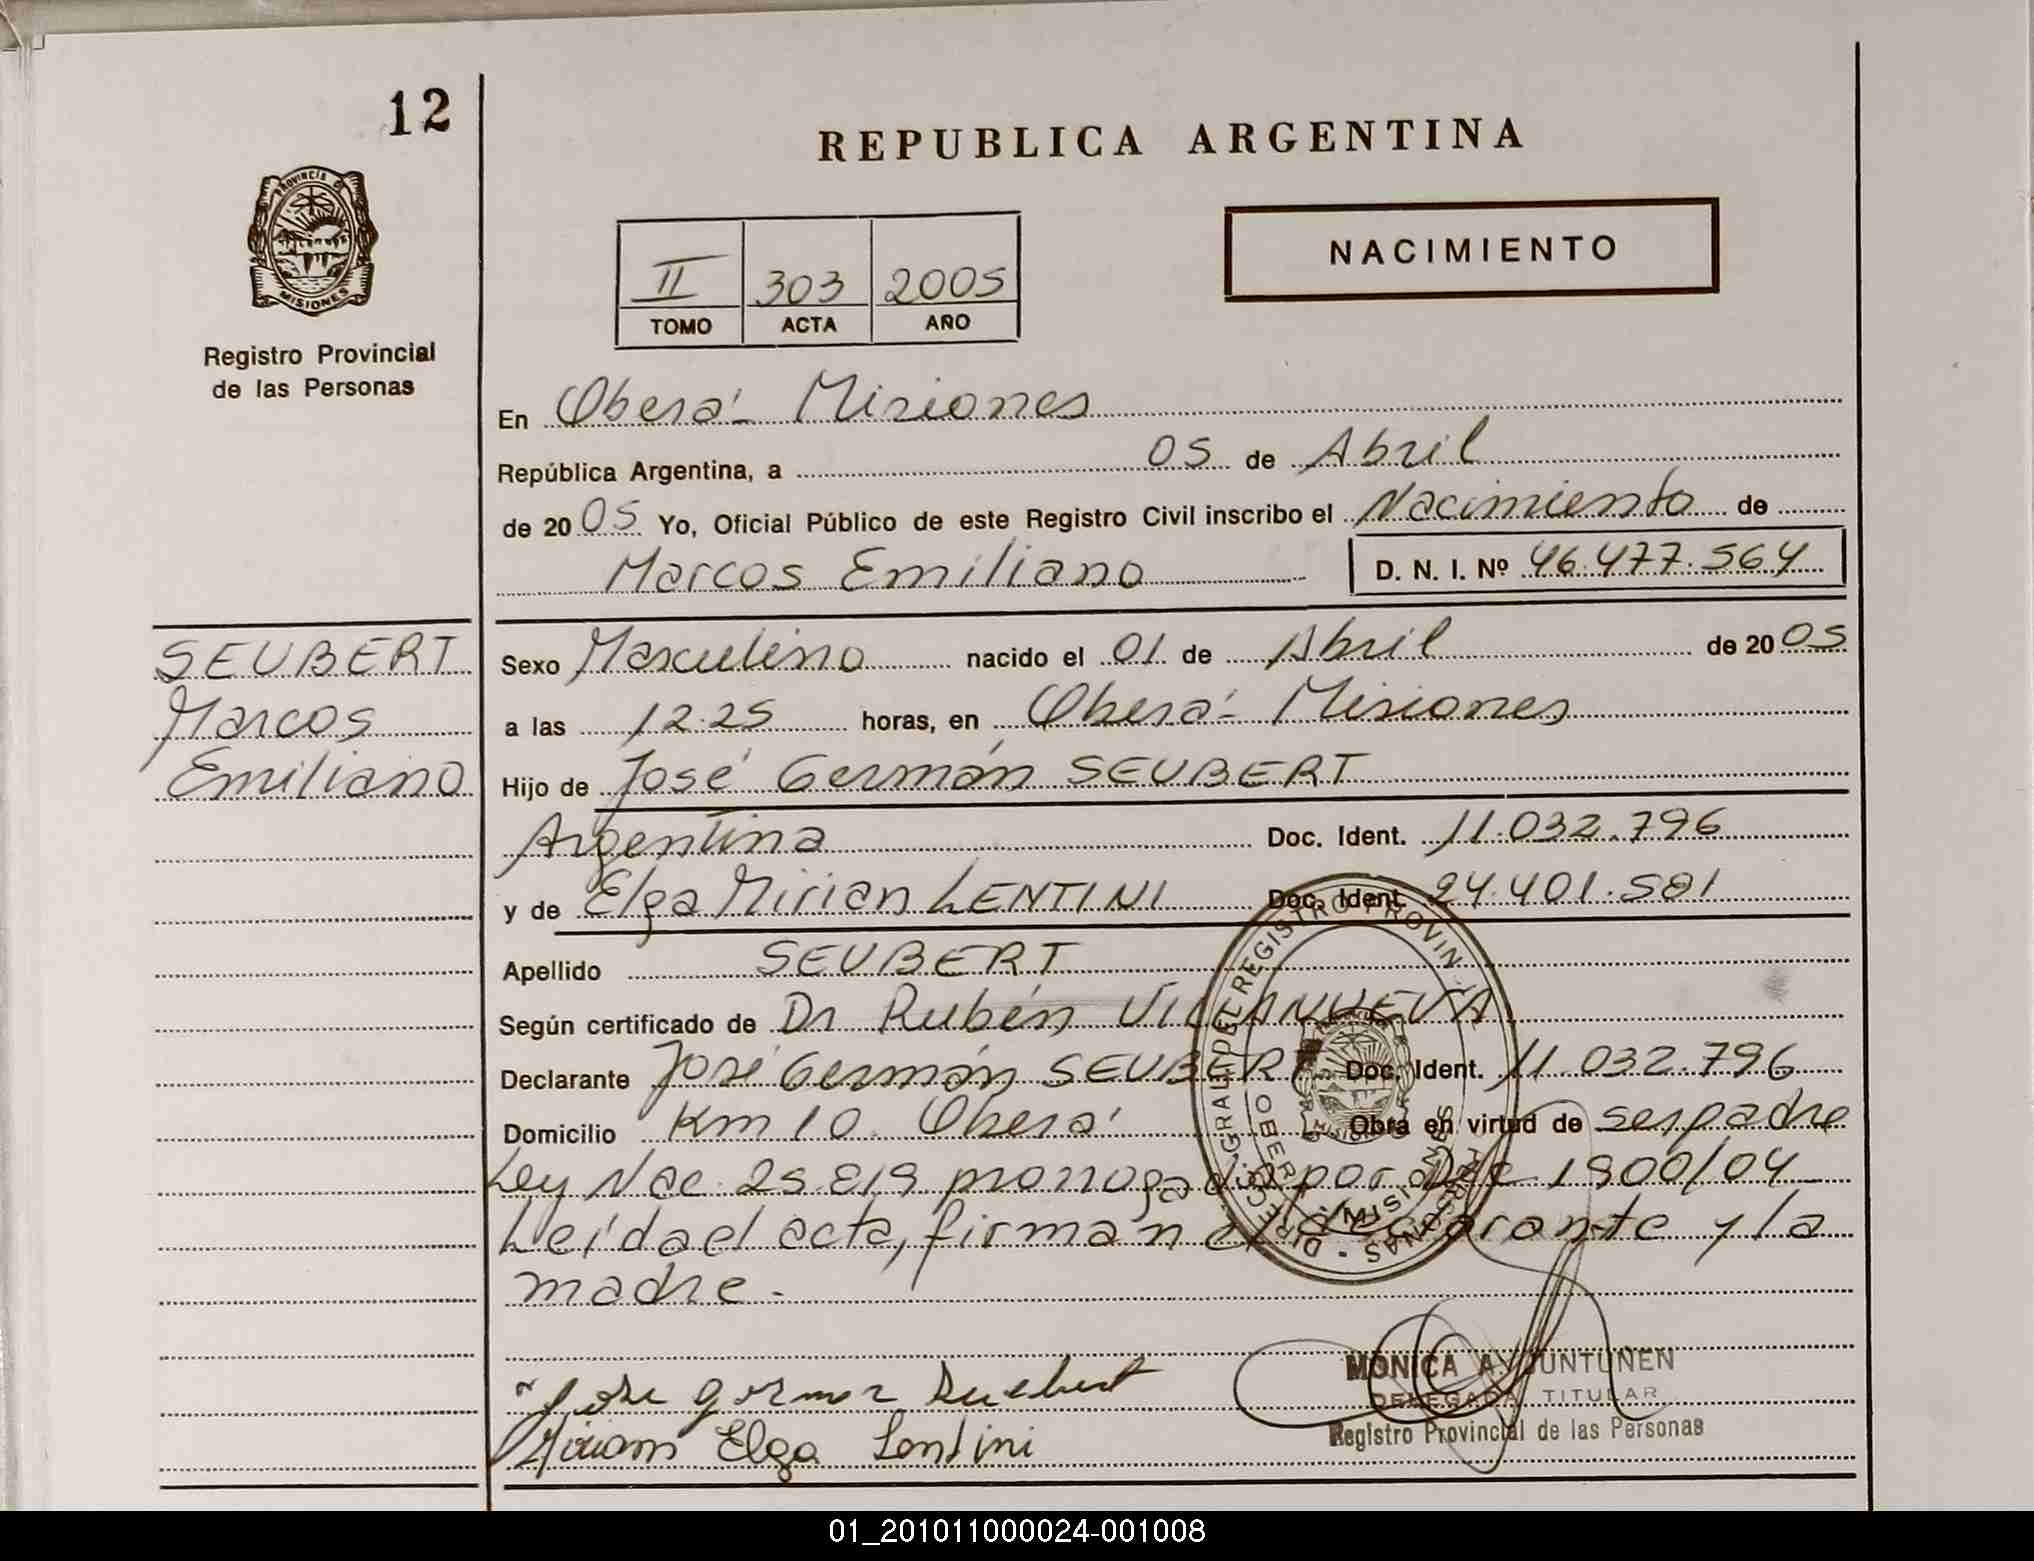 12
REPUBLICA ARGENTINA
PROVINCIA DE
MISIONES
II 303 2005
TOMO ACTA AÑO
NACIMIENTO
Registro Provincial
de las Personas
En Oberá - Misiones
República Argentina, a 05 de Abril
de 20 05 Yo, Oficial Público de este Registro Civil inscribo el Nacimiento de
Marcos Emiliano D. N. I. Nº 46.477.564
SEUBERT
Marcos
Emiliano
Sexo Masculino nacido el 01 de Abril de 20 05
a las 12.25 horas, en Oberá - Misiones
Hijo de José Germán SEUBERT
Argentina Doc. Ident. 11.032.796
y de Elga Mirian LENTINI Doc. Ident. 24.401.581
Apellido SEUBERT
Según certificado de Dr Rubén VILLANUEVA
Declarante José Germán SEUBERT Doc. Ident. 11.032.796
Domicilio Km 10 Oberá Obra en virtud de ser padre
Ley Nac. 25.819 prorrogada por Dec 1900/04
Leída el acta, firman el declarante y la
madre.
DIRECC. GRAL. DEL REGISTRO PROVIN.
PERSONAS
OBERA
MISIONES
Jose german Seubert
Miriam Elga Lentini
MONICA A. JUNTUNEN
DELEGADA TITULAR
Registro Provincial de las Personas
01_201011000024-001008